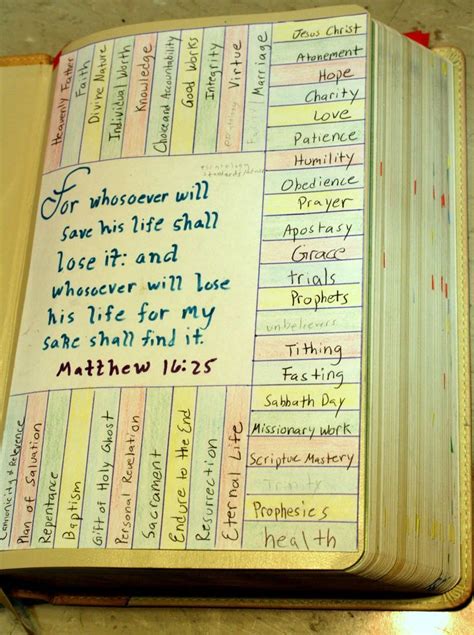 Heavenly Father
Faith
Divine Nature
Individual Worth
Knowledge
Choice and Accountability
Good Works
Integrity
Virtue
Family
Marriage
Jesus Christ
Atonement
Hope
Charity
Love
Patience
Humility
Obedience
Prayer
Apostasy
Grace
trials
Prophets
unbelievers
Tithing
Fasting
Sabbath Day
Missionary Work
Scriptue Mastery
Trinity
Prophesies
health
For whosoever will
save his life shall
lose it: and
whosoever will lose
his life for my
sake shall find it.
Matthew 16:25
Plan of Salvation
Repentance
Baptism
Gift of Holy Ghost
Personal Revelation
Sacramant
Endure to the End
Resurrection
Eternal Life